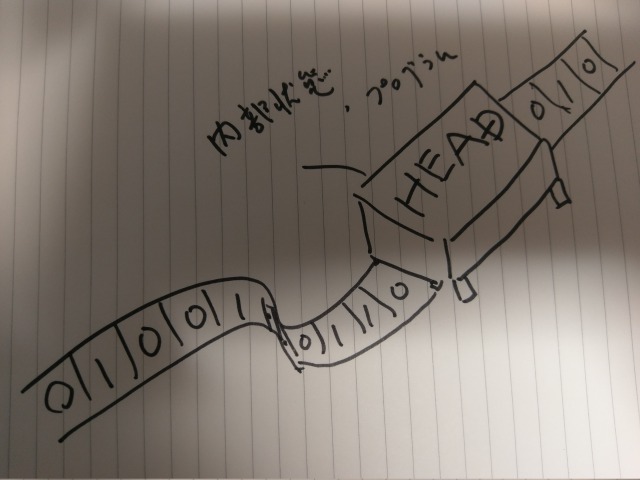 内部状態、プログラム
HEAD
010
0110
01001